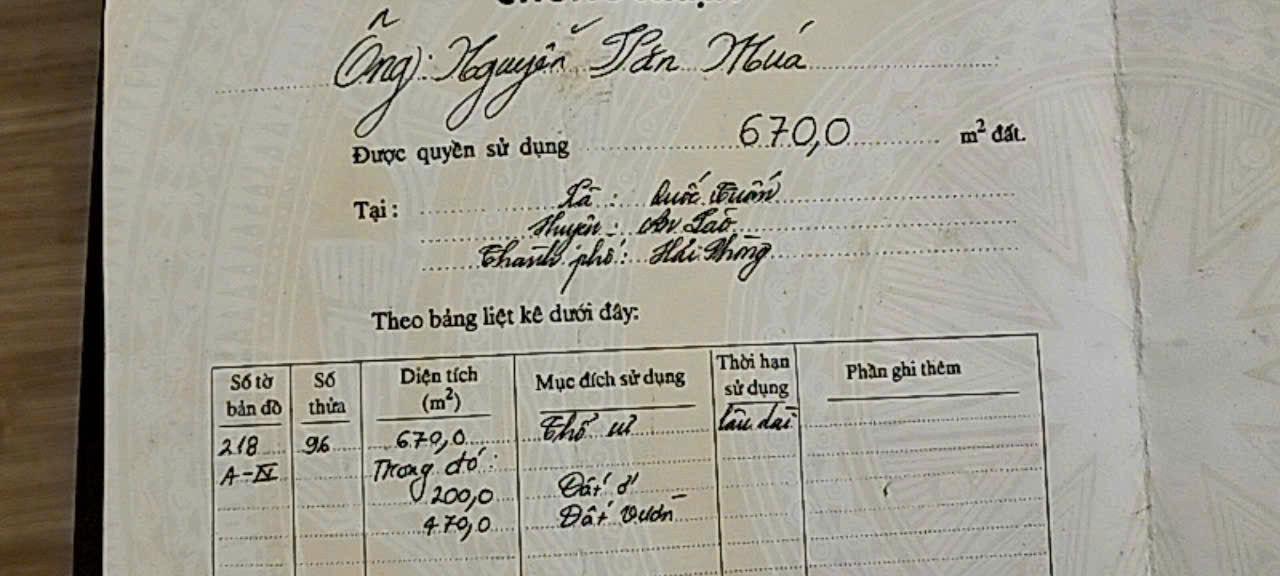 Ông: Nguyễn Tấn Mùa
Được quyền sử dụng 670,0 m² đất.
Tại: Xã: Quốc Tuấn
Huyện: An Lão
Thành phố: Hải Phòng
Theo bảng liệt kê dưới đây:
Số tờ bản đồ Số thửa Diện tích (m²) Mục đích sử dụng Thời hạn sử dụng Phần ghi thêm
218 96 670,0 Thổ cư lâu dài
A-IV Trong đó:
200,0 Đất ở
470,0 Đất vườn